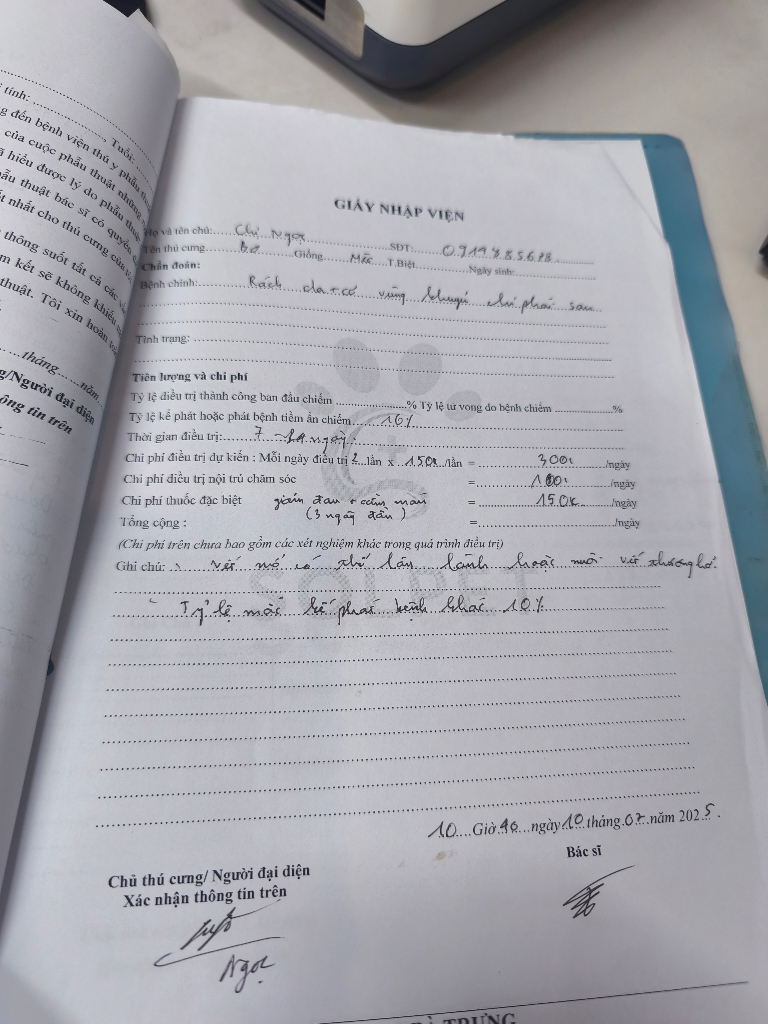 tính:
, Tuổi:
g đến bệnh viện thú y phẫu
của cuộc phẫu thuật những
ã hiểu được lý do phẫu thuật
ẫu thuật bác sĩ có quyền
t nhất cho thú cưng của
thông suốt tất cả các
m kết sẽ không khiếu
thuật. Tôi xin hoàn
tháng......năm
g/Người đại diện
ông tin trên
GIẤY NHẬP VIỆN
Họ và tên chủ: Chị Ngọc SĐT:
Tên thú cưng Bơ Giống Mèo T.Biệt Ngày sinh:
Chẩn đoán:
Bệnh chính: Rách da + có vùng khuỷu chi phải sau
Tình trạng:
Tiên lượng và chi phí
Tỷ lệ điều trị thành công ban đầu chiếm % Tỷ lệ tử vong do bệnh chiếm %
Tỷ lệ kế phát hoặc phát bệnh tiềm ẩn chiếm 10%
Thời gian điều trị: 7 - ngày
Chi phí điều trị dự kiến : Mỗi ngày điều trị 2 lần x 150k /lần = 300k /ngày
Chi phí điều trị nội trú chăm sóc = /ngày
Chi phí thuốc đặc biệt giảm đau + cầm máu = 150k /ngày
(3 ngày đầu)
Tổng cộng : = /ngày
(Chi phí trên chưa bao gồm các xét nghiệm khác trong quá trình điều trị)
Ghi chú: vết mổ có thể lâu lành hoặc nuôi vết thương hở.
Tỷ lệ mắc kế phát bệnh khác 10%
SOLPET
10 Giờ 40 ngày 10 tháng 07 năm 2025.
Chủ thú cưng/ Người đại diện
Xác nhận thông tin trên
Bác sĩ
Ngọc
TRƯNG